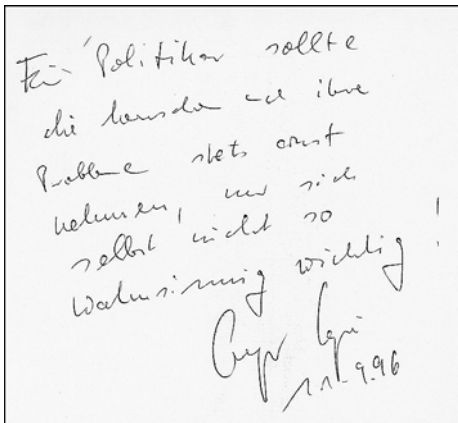 Ein Politiker sollte
die Menschen und ihre
Probleme stets ernst
nehmen, nur sich
selbst nicht so
wahnsinnig wichtig!
Gregor Gysi
11.9.96